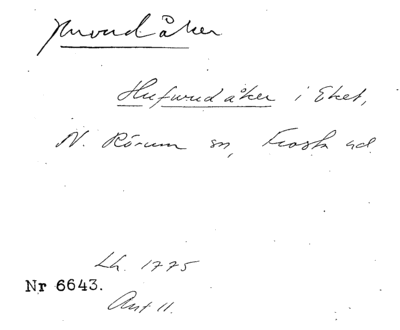 Huvudåker
Hufwudåker i Eket,
N. Rörum sn, Frosta hd.
Lh. 1775
Nr 6643.
Akt 11.